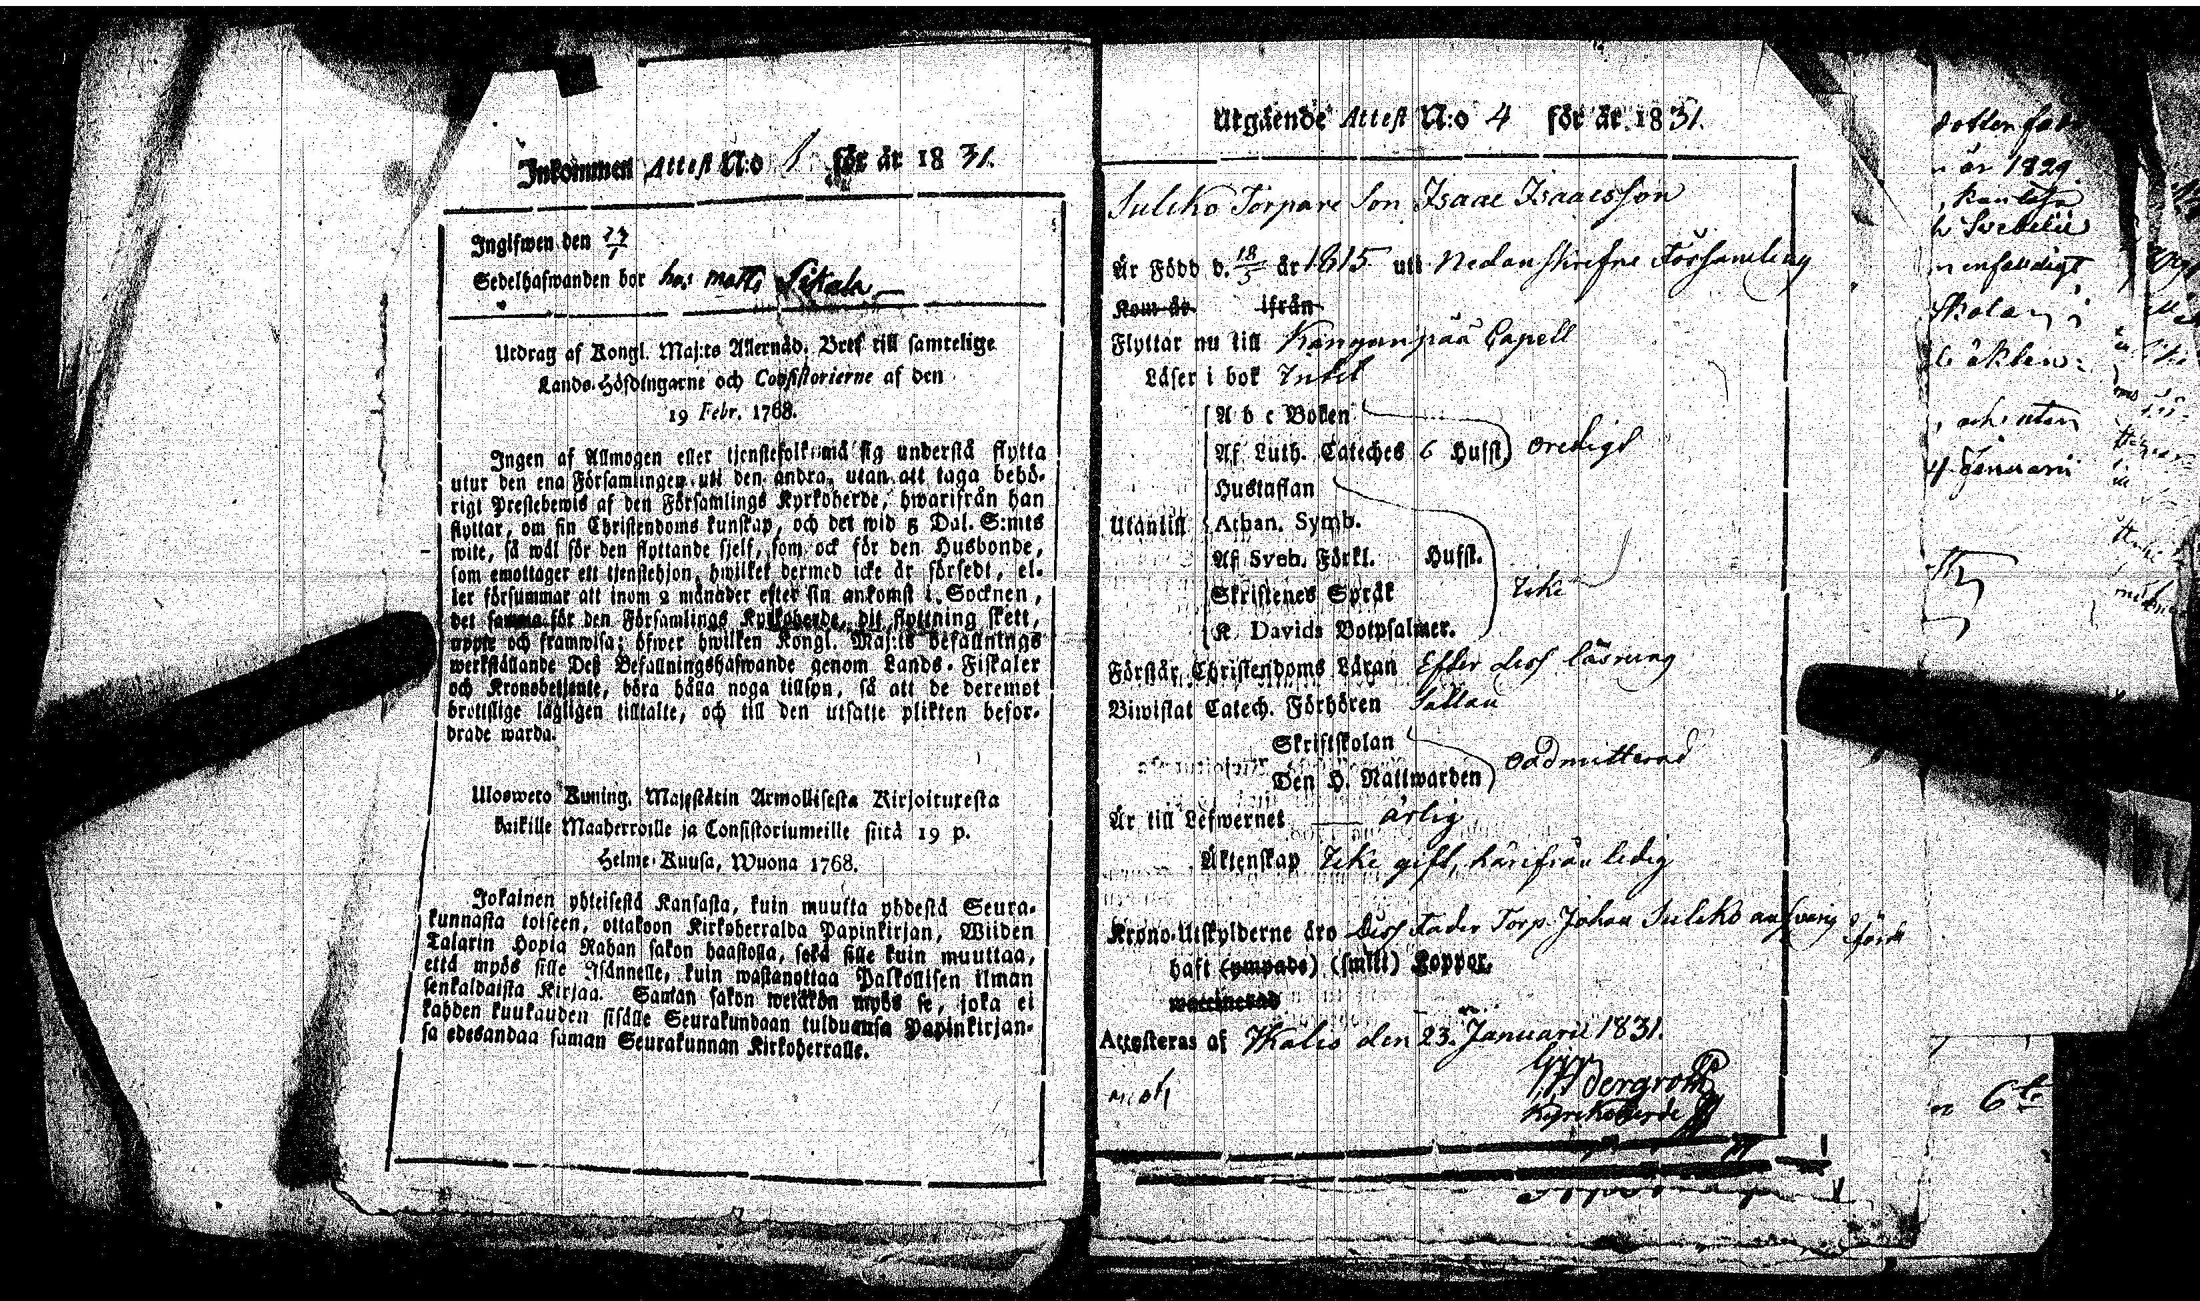 Inkommen Attest N:o 1 för år 18 31.
Ingifwen den
Sedelhafwanden bor hos Matts Sikala
Utdrag af Kongl. Maj:ts Allernåd. Bref till samtelige
Lands-Höfdingarne och Consistorierne af den
19 Febr. 1768.
Ingen af Allmogen eller tjenstefolk må sig understå flytta
utur den ena Församlingen uti den andra, utan att taga behö-
rigt Prestebewis af den Församlings Kyrkoherde, hwarifrån han
flyttar, om sin Christendoms kunskap, och det wid 5 Dal. S:mts
wite, så wäl för den flyttande sjelf, som ock för den Husbonde,
som emottager ett tjenstehjon, hwilket dermed icke är försedt, el-
ler försummar att inom 2 månader efter sin ankomst i Socknen,
det samma för den Församlings Kyrkoherde, dit flyttning skett,
uppte och framwisa; öfwer hwilken Kongl. Maj:ts befallnings
werkställande Deß Befallningshafwande genom Lands-Fiskaler
och Kronobetjente, böra hålla noga tillsyn, så att de deremot
brottslige lagligen tilltalte, och till den utsatte plikten befor-
drade warda.
Ulosweto Kuning. Majestätin Armollisesta Kirjoituxesta
kaikille Maaherroille ja Consistoriumeille siitä 19 p.
Helme-Kuusa, Wuona 1768.
Jokainen yhteisestä Kansasta, kuin muutta yhdestä Seura-
kunnasta toiseen, ottakoon Kirkoherralda Papinkirjan, Wiiden
Talarin Hopia Rahan sakon haastolla, sekä sille kuin muuttaa,
että myös sille Isännelle, kuin wastanottaa Palkollisen ilman
senkaldaista Kirjaa. Saman sakon wetäkön myös se, joka ei
kahden kuukauden sisälle Seurakundaan tulduansa Papinkirjan-
sa edesandaa saman Seurakunnan Kirkoherralle.
Utgående Attest N:o 4 för år 18 31.
Suleko Torpare Son Isaac Isaacsson
Är Född d. 18/5 år 1815 uti Nedanskrefne Församling
Kom år ifrån
Flyttar nu till Kanganpää Capell
Läser i bok Intet
A b c Boken
Af Luth. Cateches 6 Hufst. oredigt
Hustaflan
Utantill Athan. Symb.
Af Sveb. Förkl. Hufst.
Skriftenes Språk Icke
K. Davids Botpsalmer.
Förstår Christendoms Läran Efter dess läsning
Biwistat Catech. Förhören Sällan
Skriftskolan
Den H. Nattwarden oadmitterad
Är till Lefwernet ärlig
Äktenskap Icke gift, härifrån ledig
Krono-Utskylderne äro Dess Fader Torp. Johan Suleko answarig före
haft (ympade) (smitt) Koppor.
waccinerad
Attesteras af Ikalis den 23. Januarii 1831.
Bergroth
Kyrkoherde
år 1829.
Januarii